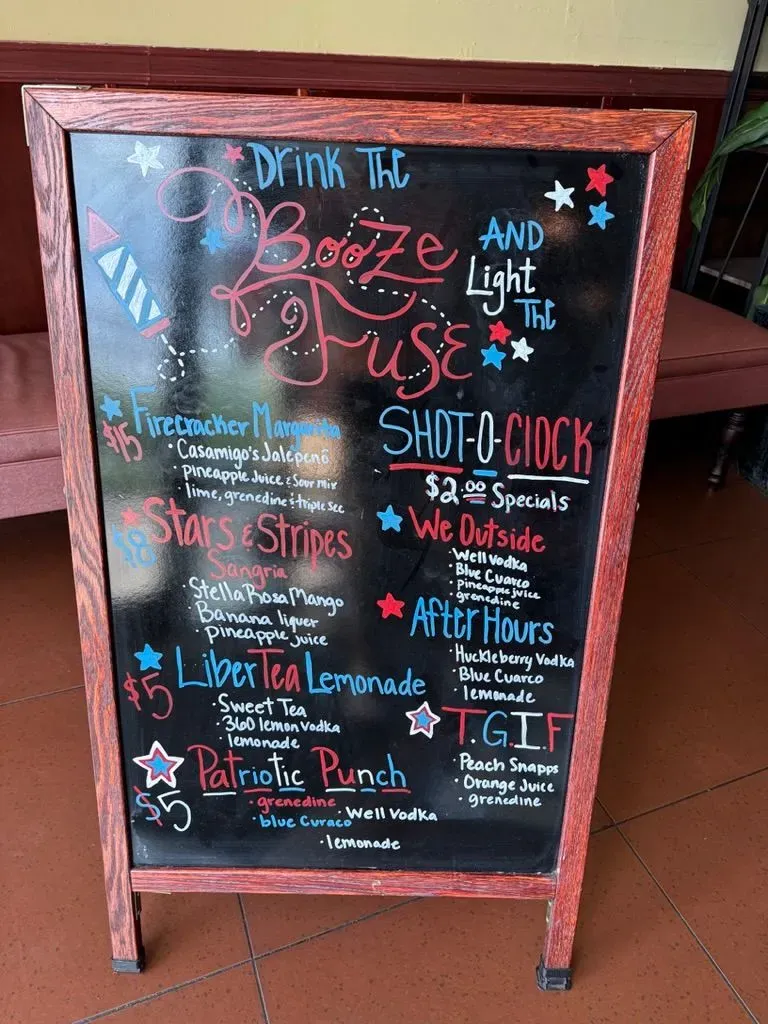 Drink The
Booze
AND
Light
The
Fuse
Firecracker Margarita
$15
• Casamigo's Jalepeno
• pineapple Juice & Sour Mix
lime, grenedine & triple sec
Stars & Stripes
$8
Sangria
• Stella Rosa Mango
• Banana liquer
• pineapple juice
LiberTea Lemonade
$5
• Sweet Tea
• 360 lemon vodka
• lemonade
Patriotic Punch
$5
• grenedine
• Well Vodka
• blue Curaco
• lemonade
SHOT-O-ClOCK
$2.00 Specials
We Outside
• Well vodka
• Blue Cuarco
• pineapple juice
• grenedine
After Hours
• Huckleberry Vodka
• Blue Cuarco
• lemonade
T.G.I.F
• Peach Snapps
• Orange Juice
• grenedine